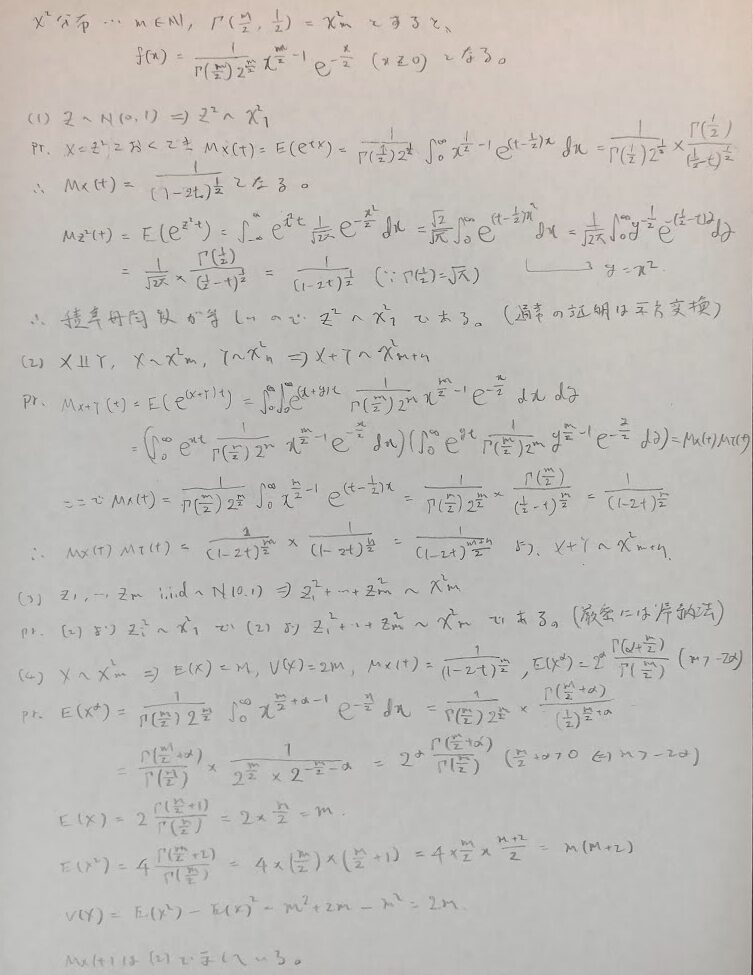 χ²分布 … m∈ℕ, Γ(m/2, 1/2) = χ²m とすると、
f(x) = 1/(Γ(m/2) 2^(m/2)) x^(m/2 - 1) e^(-x/2) (x≥0) となる。
(1) Z ~ N(0,1) ⇒ Z² ~ χ²1
pr. X=Z²とおくとき Mx(t) = E(e^(tX)) = 1/(Γ(1/2) 2^(1/2)) ∫0^∞ x^(1/2 - 1) e^((t-1/2)x) dx = 1/(Γ(1/2) 2^(1/2)) × Γ(1/2)/(1/2-t)^(1/2)
∴ Mx(t) = 1/(1-2t)^(1/2) となる。
Mz²(t) = E(e^(z²t)) = ∫-∞^∞ e^(x²t) 1/√2π e^(-x²/2) dx = √2/√π ∫0^∞ e^((t-1/2)x²) dx = 1/√2π ∫0^∞ y^(-1/2) e^(-(1/2-t)y) dy
= 1/√2π × Γ(1/2)/(1/2-t)^(1/2) = 1/(1-2t)^(1/2) (∵Γ(1/2)=√π) y=x².
∴ 積率母関数が等しいので Z² ~ χ²1 である。(通常の証明は平方変換)
(2) X⫫Y, X~χ²m, Y~χ²n ⇒ X+Y ~ χ²m+n
pr. Mx+Y(t) = E(e^((X+Y)t)) = ∫0^∞∫0^∞ e^((x+y)t) 1/(Γ(m/2) 2^m) x^(m/2 - 1) e^(-x/2) dx dy
= (∫0^∞ e^(xt) 1/(Γ(m/2) 2^m) x^(m/2 - 1) e^(-x/2) dx)(∫0^∞ e^(yt) 1/(Γ(m/2) 2^m) y^(m/2 - 1) e^(-y/2) dy) = Mx(t) MY(t)
ここで Mx(t) = 1/(Γ(m/2) 2^(m/2)) ∫0^∞ x^(m/2 - 1) e^((t-1/2)x) = 1/(Γ(m/2) 2^(m/2)) × Γ(m/2)/(1/2-t)^(m/2) = 1/(1-2t)^(m/2)
∴ Mx(t) MY(t) = 1/(1-2t)^(m/2) × 1/(1-2t)^(n/2) = 1/(1-2t)^((m+n)/2) より、X+Y ~ χ²m+n.
(3) Z1, … Zm i.i.d ~ N(0,1) ⇒ Z1²+…+Zm² ~ χ²m
pr. (2)より Zi² ~ χ²1 で (2)より Z1²+…+Zm² ~ χ²m である。(厳密には帰納法)
(4) X ~ χ²m ⇒ E(X)=m, V(X)=2m, Mx(t) = 1/(1-2t)^(m/2), E(X^α) = 2^α Γ(α+m/2)/Γ(m/2) (m>-2α)
pr. E(X^α) = 1/(Γ(m/2) 2^(m/2)) ∫0^∞ x^(m/2+α-1) e^(-x/2) dx = 1/(Γ(m/2) 2^(m/2)) × Γ(m/2+α)/(1/2)^(m/2+α)
= Γ(m/2+α)/Γ(m/2) × 1/(2^(m/2) × 2^(-m/2-α)) = 2^α Γ(m/2+α)/Γ(m/2) (m/2+α>0 ⇔ m>-2α)
E(X) = 2 Γ(m/2+1)/Γ(m/2) = 2 × m/2 = m.
E(X²) = 4 Γ(m/2+2)/Γ(m/2) = 4×(m/2)×(m/2+1) = 4×m/2×(m+2)/2 = m(m+2)
V(X) = E(X²) - E(X)² = m²+2m-m² = 2m.
Mx(t)は(2)で示している。